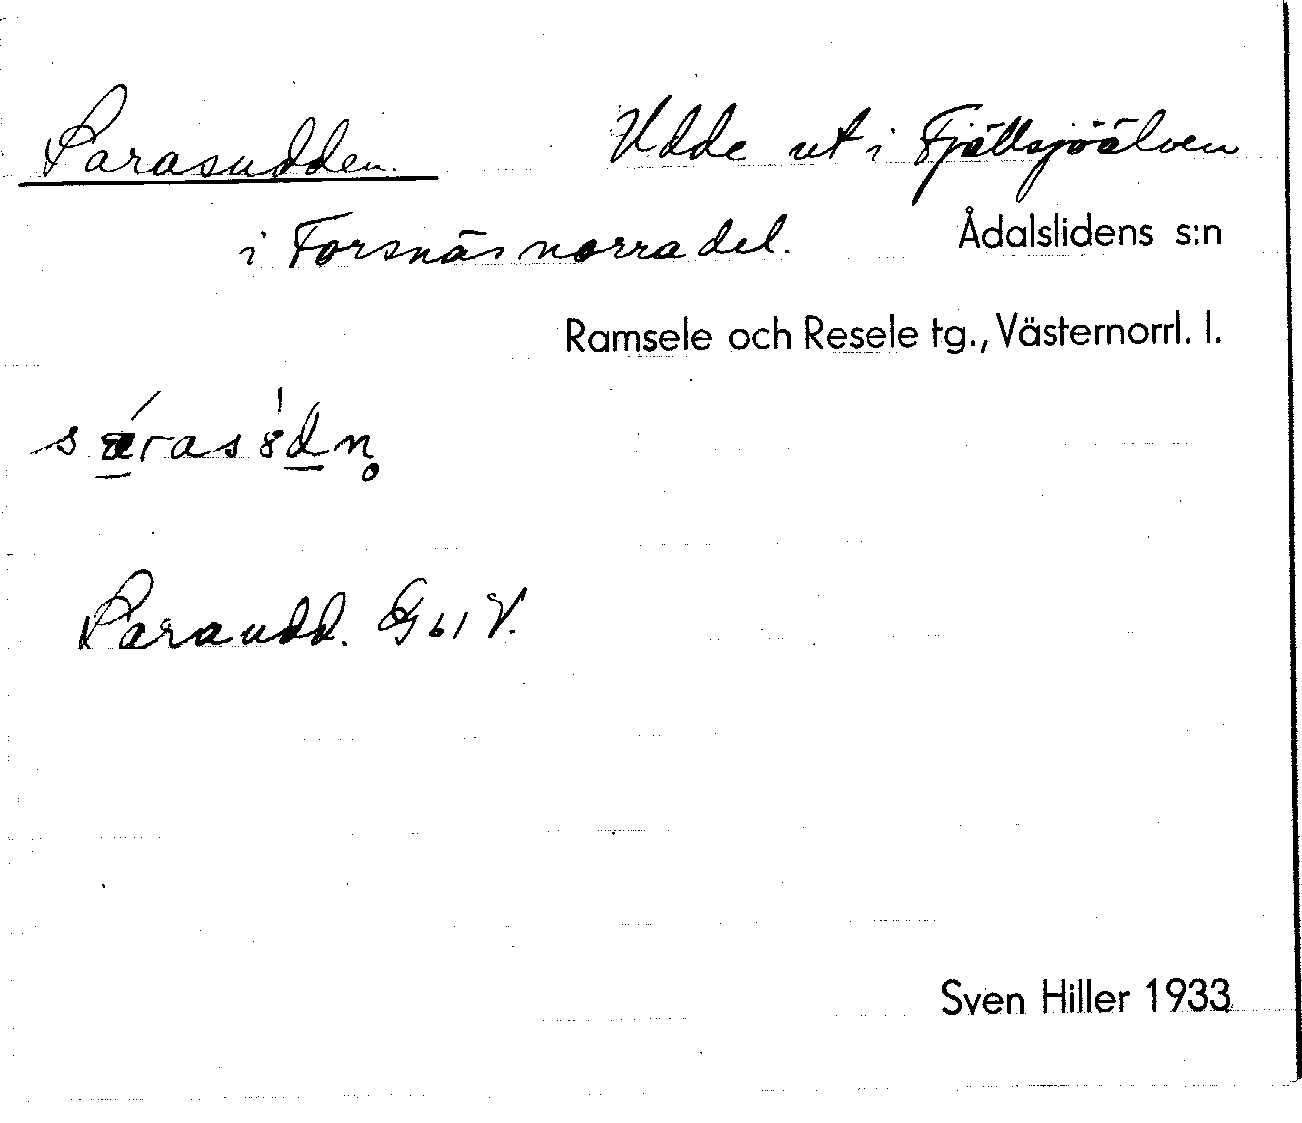 Sarasudden. Udde ut i Fjällsjöälven
i Forsnäs norra del. Ådalslidens s:n
Ramsele och Resele tg., Västernorrl. l.
Saraudd. Gbl V.
Sven Hiller 1933